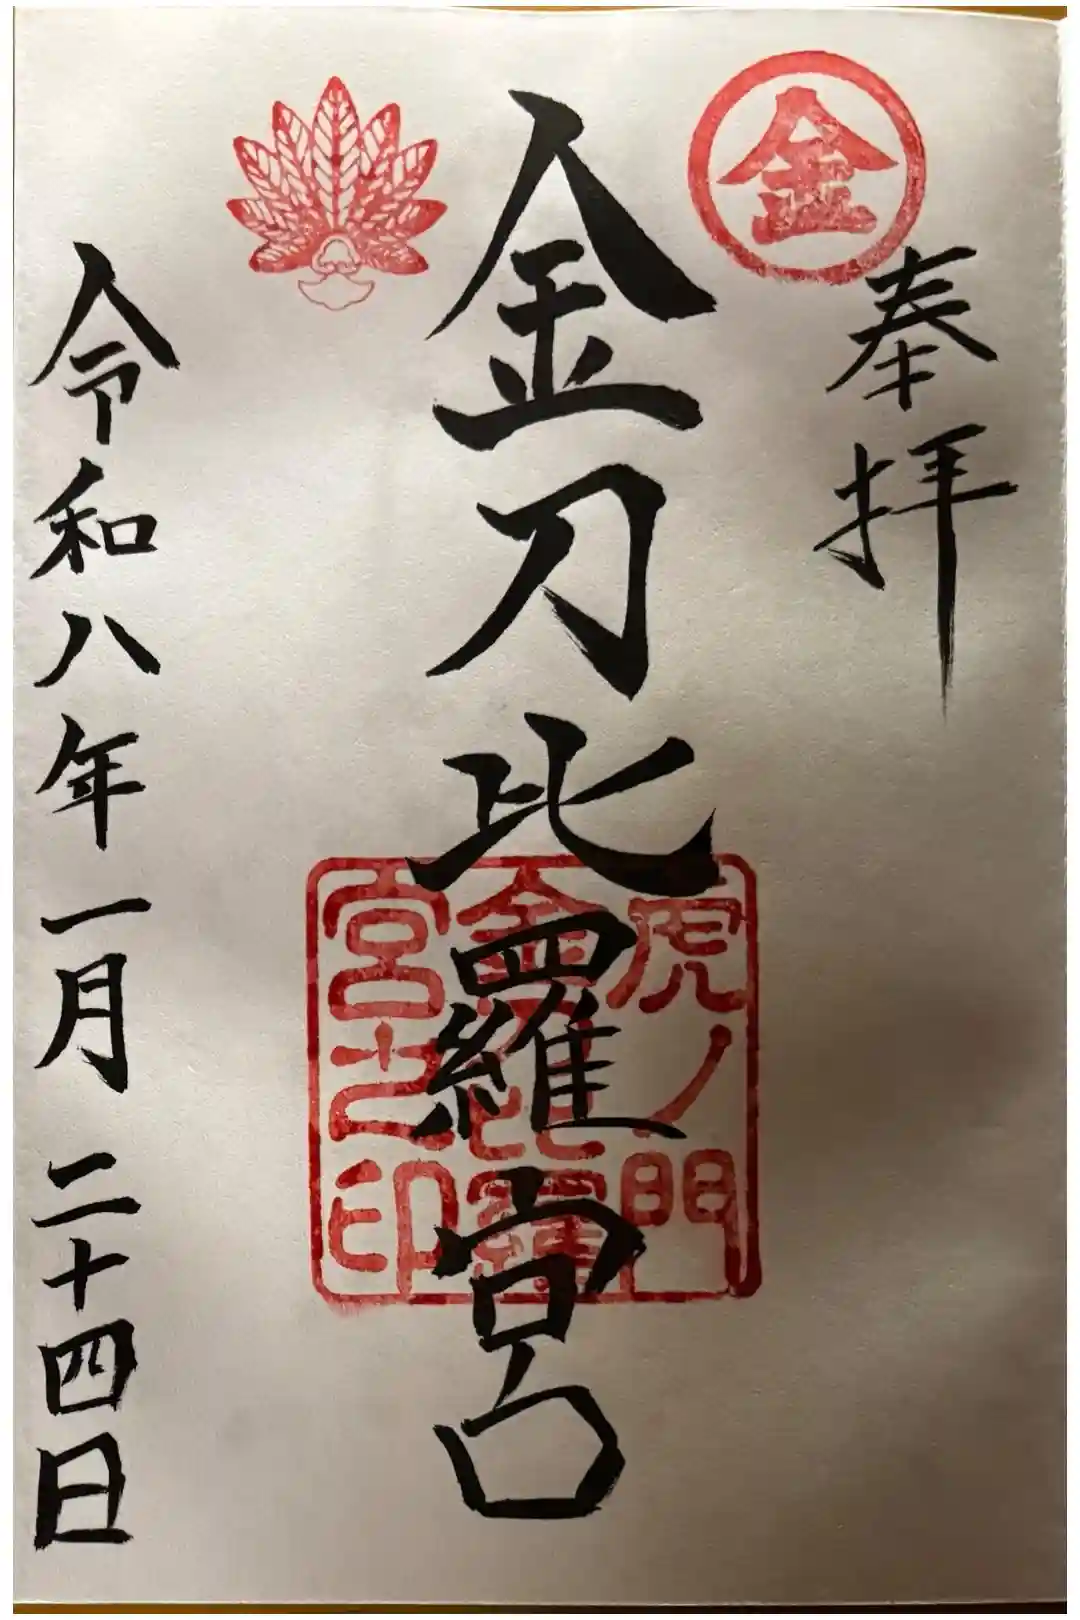 金
奉拝
金刀比羅宮
虎ノ門
金刀比羅
宮之印
令和八年一月二十四日